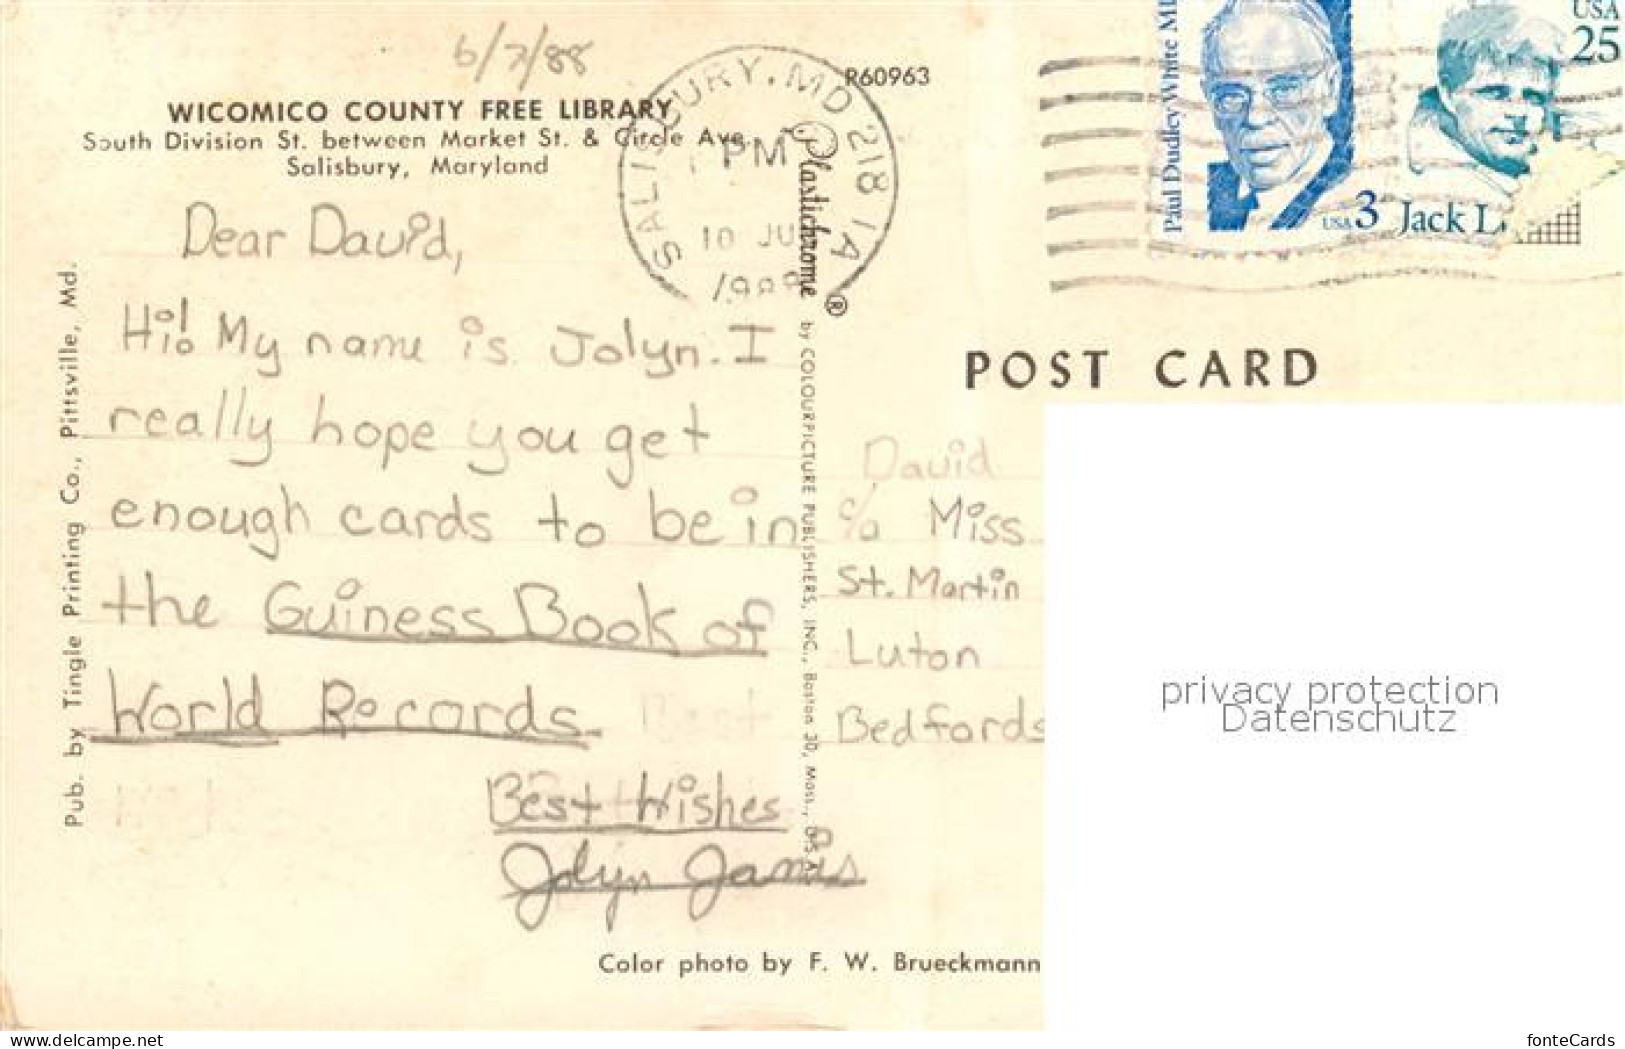 6/7/88
R60963
WICOMICO COUNTY FREE LIBRARY
South Division St. between Market St. & Circle Ave.
Salisbury, Maryland
SALISBURY, MD 218
PM
10 JU
1988
Paul Dudley White MD
USA 3
USA
25
Jack L
Dear David,
Hi! My name is Jolyn. I
really hope you get
enough cards to be in
the Guiness Book of
World Records.
Best Wishes
Jolyn Jamis
Pub. by Tingle Printing Co., Pittsville, Md.
Plastichrome ® by COLOURPICTURE PUBLISHERS, INC., Boston 30, Mass., U.S.A.
POST CARD
David
c/o Miss
St. Martin
Luton
Bedfords
Color photo by F. W. Brueckmann
privacy protection
Datenschutz
www.delcampe.net
fonteCards